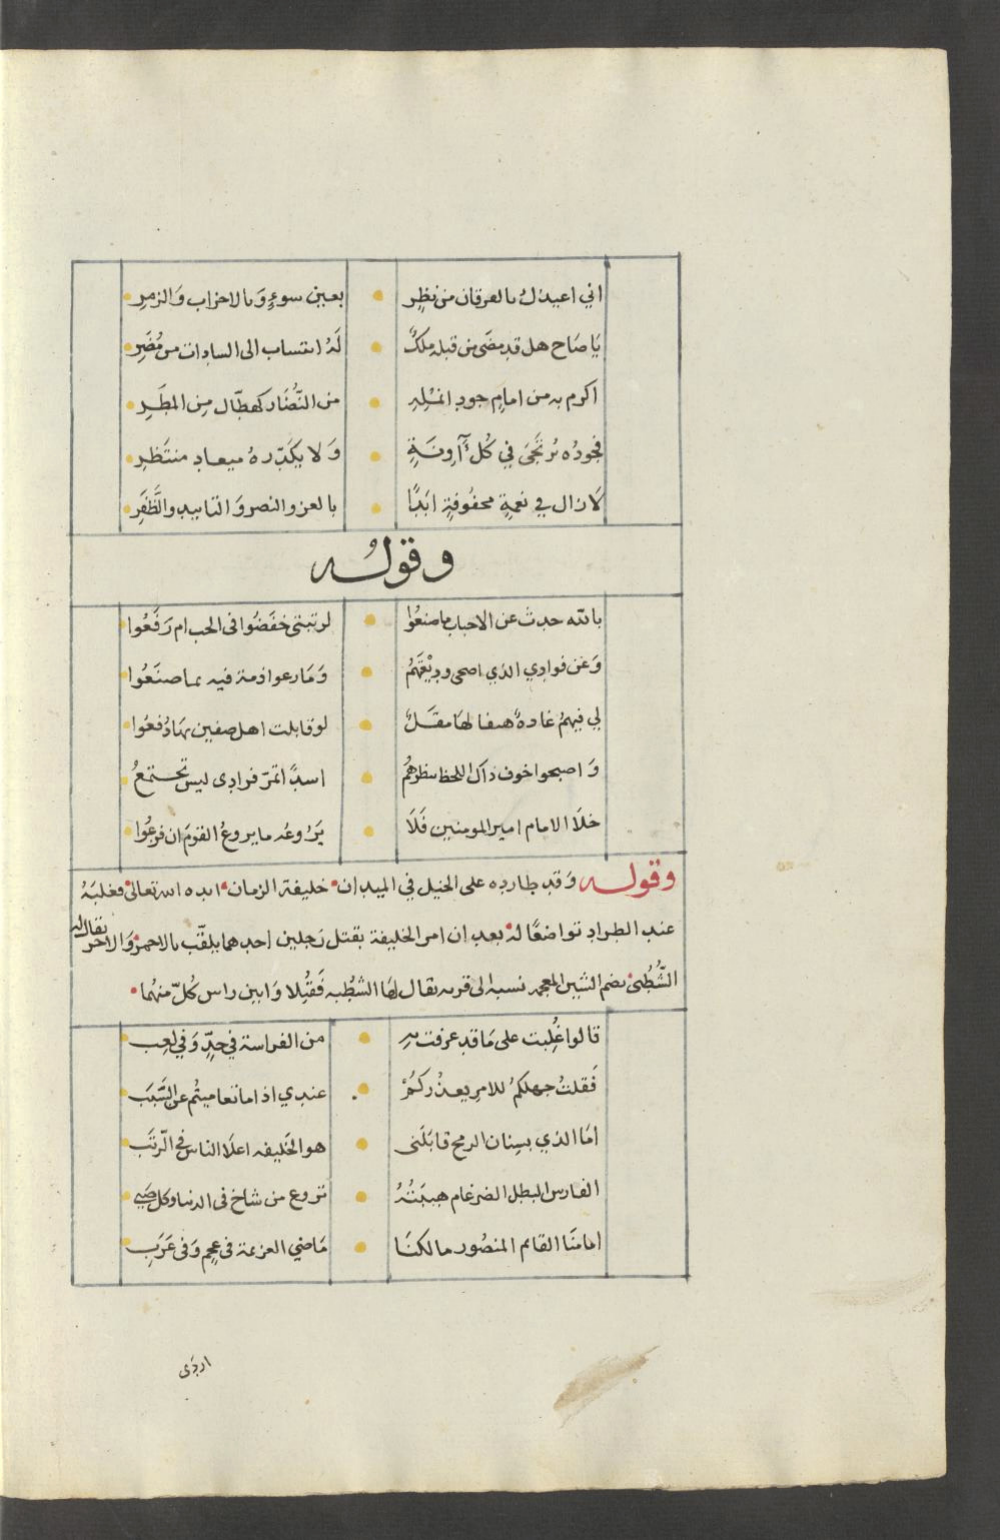 اني اعيذك بالفرقان من نظر • بعين سوءٍ وَبالاحزاب وَالزمر
يَا صَاح هل قد مضَى من قبله ملكٌ • لَهُ انتساب الى السادات من مُضَر
اكرم به من امامٍ جود انمُلِهِ • من النُّضَار كهطّال مِن المطَر
فجودُه تُرتجَى في كُل آرِونَةٍ • وَلا يكَدّره ميعاد منتَظر
لَازال في نعمةٍ محفُوفةٍ ابَدًا • بالعز والنصر وَالتاييد والظَّفَر
وقولُه
بالله حدث عن الاحباب ما صنعُوا • لرتبتي خفَضُوا فى الحب ام رَفَعُوا
وَعن فوادي الذي اضحى وديْعَتَهُم • وَمَا رعوا ذمة فيه بما صنَعُوا
لي فيهمُ غادةٌ هيفا لهَا مقَلٌ • لو قابلت اهل صفين بهَا دُفعُوا
وَاصبحوا خوف ذاك اللحظ ينظرهُم • اسدًا تمرّ فرادى ليس تجتمعُ
خلَا الامام امير المومنين فَلَا • يَرُوعُه ما يروعُ القومَ ان فزعُوا
وقوله وَقد طارده على الخيل في الميدان • خليفة الزمان • ايده الله تعالى • فغلبَهُ
عند الطراد تواضعًا له • بعد ان امر الخليفة بقتل رَجلين احدهما يلقّب بالاحمر • وَالاخر يقال له
الشُّطبي • بضم الشين المعجمه نسبه الى قريه يقال لهَا الشطْبه فَقُتِلا وَابين راس كُلّ منهُما •
قالوا غُلِبت على مَا قد عرفت به • من الفراسة في جِدٍّ وَفي لعِب
فَقلتُ جهلكُم للامرِ يعذركمُ • عندي اذا ما تعاميتُم عن السَّبَب
امَا الذي بسِنان الرمح قابَلَنى • هو الخَليفه اعلَا الناس في الرّتَب
الفارس البطل الضرغام هيبَتُهُ • تروع من شاخ في الدنيا وكل صَبي
امامنَا القايم المنصُور مالكنَا • مَاضي العزيمة في عجمٍ وَفى عَرَبِ
اردى